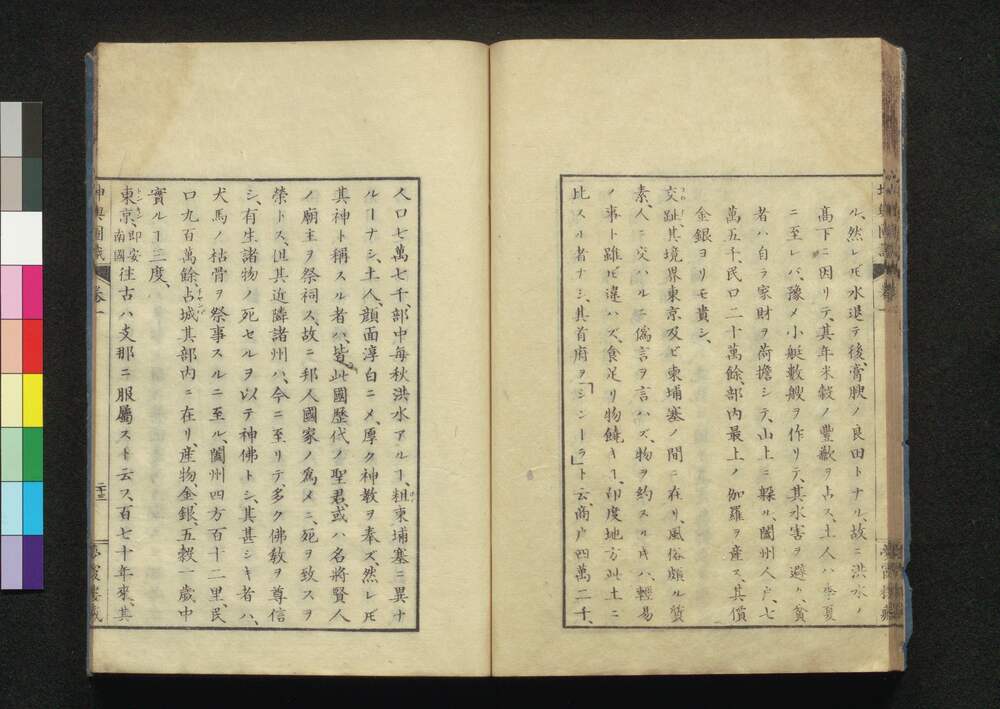 ル、然レ𪜈水退テ後、膏腴ノ良田トナル、故ニ洪水ノ
高下ニ因リテ、其年米穀ノ豊歉ヲ占ス、土人ハ季夏
ニ至レバ、豫メ小艇數艘ヲ作リテ、其水害ヲ避ク、貧
者ハ自ラ家財ヲ荷擔シテ、山上ニ躱ル、闔州人戸、七
萬五千、民口二十萬餘、部内最上ノ伽羅ヲ産ス、其價
金銀ヨリモ貴シ、
交趾、其境界東京及ビ東埔塞ノ間ニ在リ、風俗頗ル質
素、人ニ交ハルニ僞言ヲ言ハズ、物ヲ約スル𪜈ハ、輕易
ノ事ト雖𪜈違ハズ、食足リ物饒キヿ、印度地方此土ニ
比スル者ナシ、其首府ヲ「シンーラ」ト云、商戸四萬二千、
人口七萬七千、部中毎秋洪水アルヿ、粗東埔塞ニ異ナ
ルヿナシ、土人、顔面淳白ニメ、厚ク神教ヲ奉ズ、然レ𪜈
其神ト稱スル者ハ、皆此國歴代ノ聖君、或ハ名將賢人
ノ廟主ヲ祭祠ス、故ニ邦人國家ノ爲メニ、死ヲ致スヲ
榮トス、但其近隣諸州ハ、今ニ至リテ、多ク佛教ヲ尊信
シ、有生諸物ノ死セルヲ以テ神佛トシ、其甚シキ者ハ、
犬馬ノ枯骨ヲ祭事スルニ至ル、闔州四方百十二里、民
口九百萬餘、占城、其部内ニ在リ、産物、金銀、五穀一歳中
チヤンパ
實ルヿ三度、
東京、即安南國 往古ハ支那ニ服屬スト云フ、百七十年來、其
トンキン
坤輿圖識
卷一
二十三